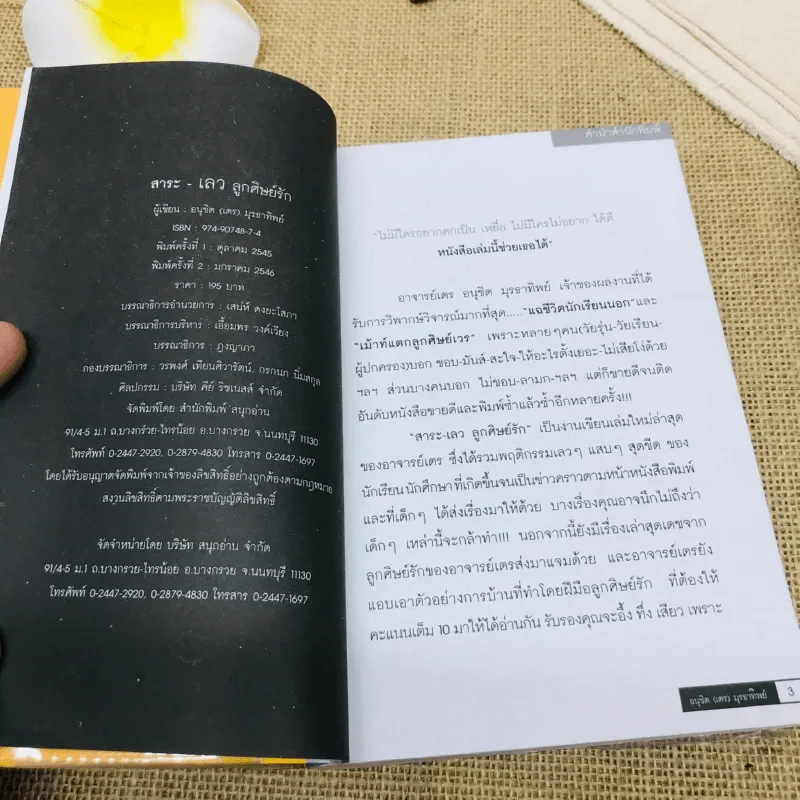 สาระ - เลว ลูกศิษย์รัก
ผู้เขียน : อนุชิต (เตร) มุรธาทิพย์
ISBN : 974-90748-7-4
พิมพ์ครั้งที่ 1 : ตุลาคม 2545
พิมพ์ครั้งที่ 2 : มกราคม 2546
ราคา : 195 บาท
บรรณาธิการอำนวยการ : เสน่ห์ ดงยะโสภา
บรรณาธิการบริหาร : เอื้อมพร วงค์เวียง
บรรณาธิการ : ฎงญาภา
กองบรรณาธิการ : วรพงศ์ เพียนศิวารัตน์, กรกนก นิ่มสกุล
ศิลปกรรม : บริษัท คีย์ ริชเนสส์ จำกัด
จัดพิมพ์โดย สำนักพิมพ์ สนุกอ่าน
91/4-5 ม.1 ถ.บางกรวย-ไทรน้อย อ.บางกรวย จ.นนทบุรี 11130
โทรศัพท์ 0-2447-2920, 0-2879-4830 โทรสาร 0-2447-1697
โดยได้รับอนุญาตจัดพิมพ์จากเจ้าของลิขสิทธิ์อย่างถูกต้องตามกฎหมาย
สงวนลิขสิทธิ์ตามพระราชบัญญัติลิขสิทธิ์
จัดจำหน่ายโดย บริษัท สนุกอ่าน จำกัด
91/4-5 ม.1 ถ.บางกรวย-ไทรน้อย อ.บางกรวย จ.นนทบุรี 11130
โทรศัพท์ 0-2447-2920, 0-2879-4830 โทรสาร 0-2447-1697
คำนำสำนักพิมพ์
"ไม่มีใครอยากตกเป็น เหยื่อ ไม่มีใครไม่อยาก ได้ดี
หนังสือเล่มนี้ช่วยเธอได้"
อาจารย์เตร อนุชิต มุรธาทิพย์ เจ้าของผลงานที่ได้
รับการวิพากษ์วิจารณ์มากที่สุด....."แฉชีวิตนักเรียนนอก"และ
"เม้าท์แตกลูกศิษย์เวร" เพราะหลายๆคน(วัยรุ่น-วัยเรียน-
ผู้ปกครอง)บอก ชอบ-มันส์-สะใจ-ให้อะไรตั้งเยอะ-ไม่เสียโง่ด้วย
ฯลฯ ส่วนบางคนบอก ไม่ชอบ-ลามก-ฯลฯ แต่ก็ขายดีจนติด
อันดับหนังสือขายดีและพิมพ์ซ้ำแล้วซ้ำอีกหลายครั้ง!!!
"สาระ-เลว ลูกศิษย์รัก" เป็นงานเขียนเล่มใหม่ล่าสุด
ของอาจารย์เตร ซึ่งได้รวมพฤติกรรมเลวๆ แสบๆ สุดขีด ของ
นักเรียนนักศึกษาที่เกิดขึ้นจนเป็นข่าวคราวตามหน้าหนังสือพิมพ์
และที่เด็กๆ ได้ส่งเรื่องมาให้ด้วย บางเรื่องคุณอาจนึกไม่ถึงว่า
เด็กๆ เหล่านี้จะกล้าทำ!!! นอกจากนี้ยังมีเรื่องเล่าสุดเตชจาก
ลูกศิษย์รักของอาจารย์เตรส่งมาแจมด้วย และอาจารย์เตรยัง
แอบเอาตัวอย่างการบ้านที่ทำโดยฝีมือลูกศิษย์รัก ที่ต้องให้
คะแนนเต็ม 10 มาให้ได้อ่านกัน รับรองคุณจะอึ้ง ทึ่ง เสียว เพราะ
อนุชิต (เตร) มุรธาทิพย์ 3